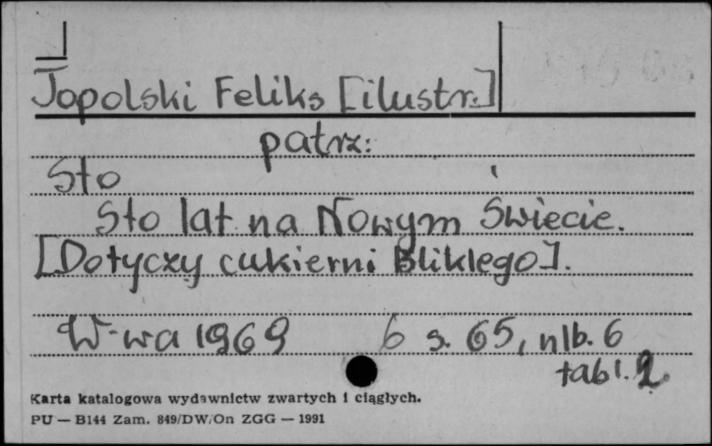 Topolski Feliks [ilustr.]
patrz:
Sto
Sto lat na Nowym Świecie.
[Dotyczy cukierni Bliklego].
W-wa 1969 6 s. 65, nlb. 6
tabl. 2.
Karta katalogowa wydawnictw zwartych i ciągłych.
PU — B144 Zam. 849/DW/On ZGG — 1991